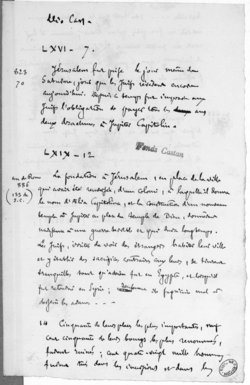 Dio Cass.
LXVI - 7.
823
70
Jérusalem fut prise le jour même de
Saturne, jour que les Juifs révèrent encore
aujourd'hui. Depuis ce temps fut imposée aux
Juifs l'obligation de payer tous les ans
deux drachmes à Jupiter Capitolin.
Fonds Castan
LXIX - 12
an de Rome
888
135 de
J.C.
La fondation à Jérusalem, en place de la ville
qui avait été renversée, d'une colonie, à laquelle il donna
le nom d'Aelia Capitolina, et la construction d'un nouveau
temple à Jupiter en place du temple de Dieu, donnèrent
naissance à une guerre terrible et qui dura longtemps.
Les Juifs, irrités de voir des étrangers habiter leur ville
et y établir des sacrifices contraires aux leurs, se tinrent
tranquilles, tant qu'Adrien fut en Égypte, et lorsqu'il
fut retourné en Syrie;
14 Cinquante de leurs places les plus importantes, neuf
cent cinquante de leurs bourgs les plus renommés,
furent ruinés; cent quatre-vingt mille hommes
furent tués dans les incursions et dans les